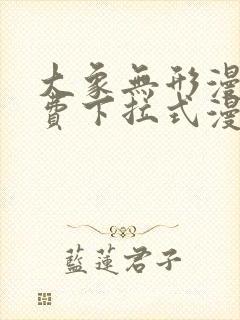 大象無形漫
費下拉式漫
藍蓮君子